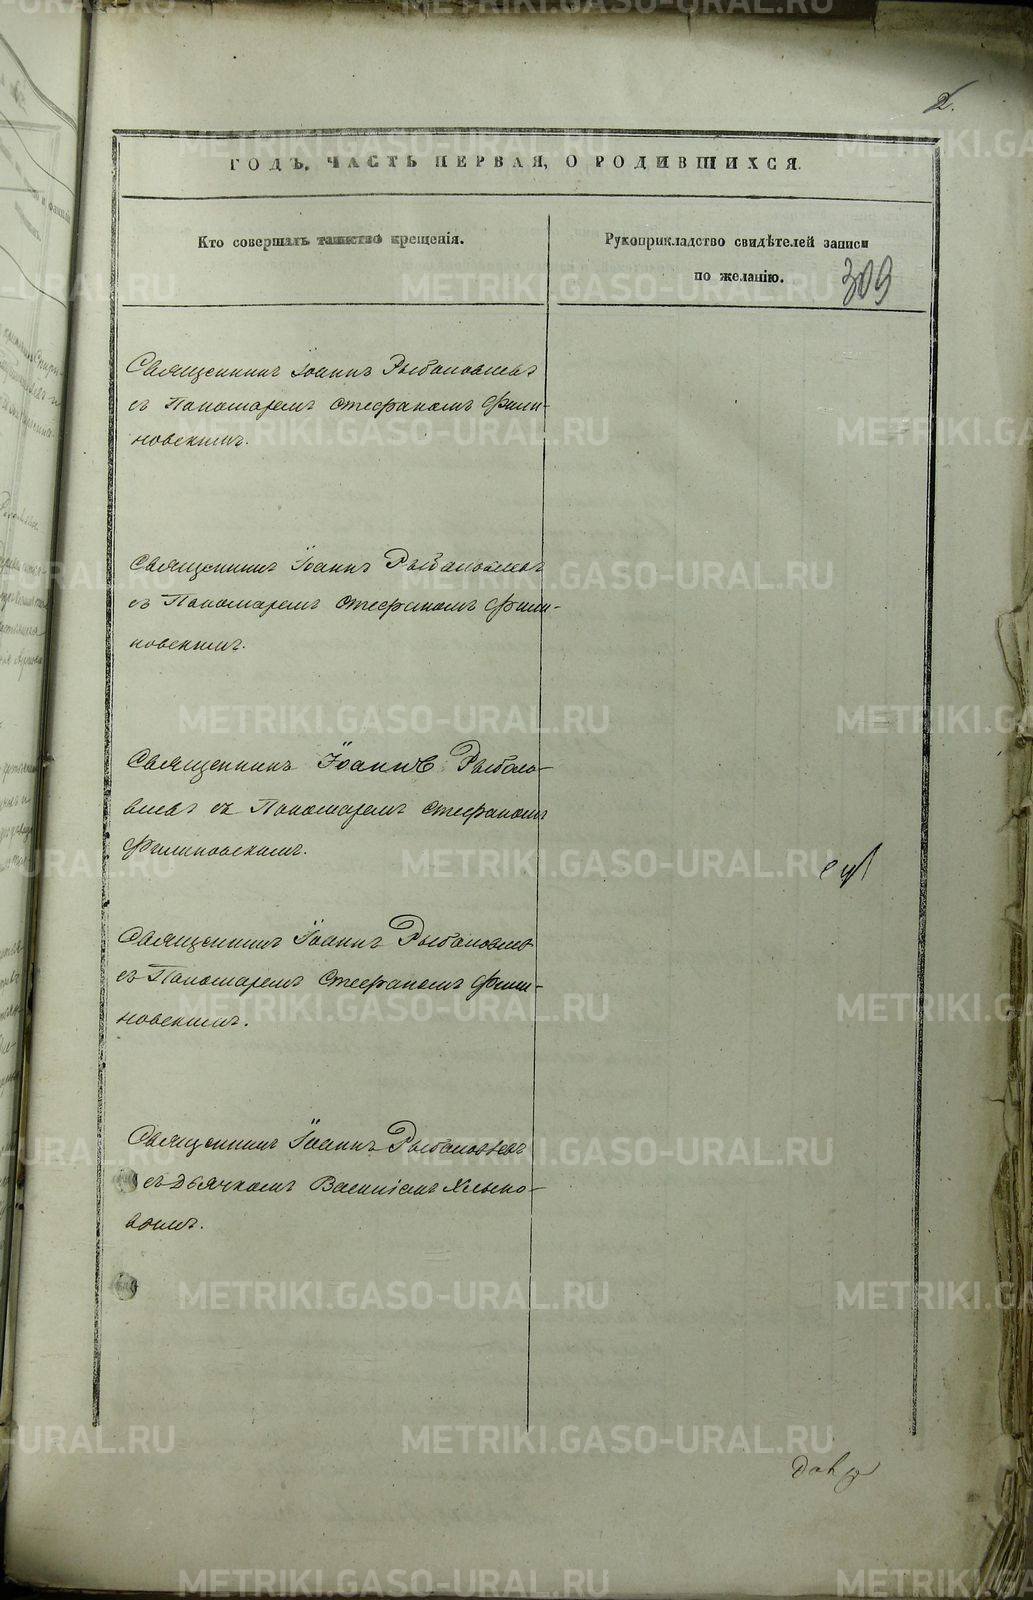 2.
ГОДЪ, ЧАСТЬ ПЕРВАЯ, О РОДИВШИХСЯ.
Кто совершалъ таинство крещенія.
Рукоприкладство свидѣтелей записи
по желанію.
309
Священникъ Іоаннъ Рыболовлевъ
съ Пономаремъ Стефаномъ Фили-
новскимъ.
Священникъ Іоаннъ Рыболовлевъ
съ Пономаремъ Стефаномъ Фили-
новскимъ.
Священникъ Іоаннъ Рыболо-
влевъ съ Пономаремъ Стефаномъ
Филиновскимъ.
Священникъ Іоаннъ Рыболовлевъ
съ Пономаремъ Стефаномъ Фили-
новскимъ.
Священникъ Іоаннъ Рыболовлевъ
съ Дьячкомъ Василіемъ Хлыно-
вымъ.
METRIKI.GASO-URAL.RU